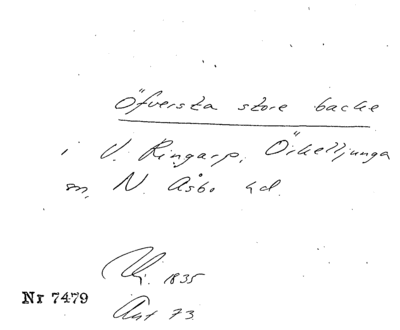 Öfversta store backe
i V. Ringarp, Örkelljunga
sn, N. Åsbo hd.
1835
Nr 7479
Aut 73